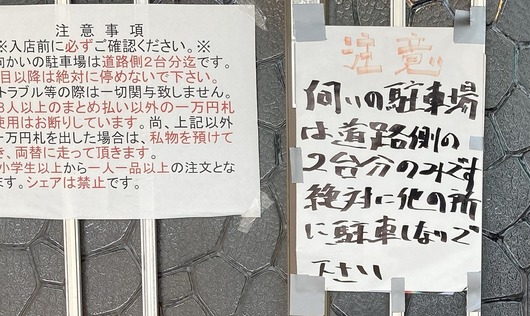 注意事項
※入店前に必ずご確認ください。※
向かいの駐車場は道路側２台分迄です。
目以降は絶対に停めないで下さい。
トラブル等の際は一切関与致しません。
3人以上のまとめ払い以外の一万円札
使用はお断りしています。尚、上記以外
一万円札を出した場合は、私物を預けて
き、両替に走って頂きます。
小学生以上から一人一品以上の注文とな
ます。シェアは禁止です。
注意
向いの駐車場
は道路側の
2台分のみです
絶対に他の所
に駐車しないで
下さい